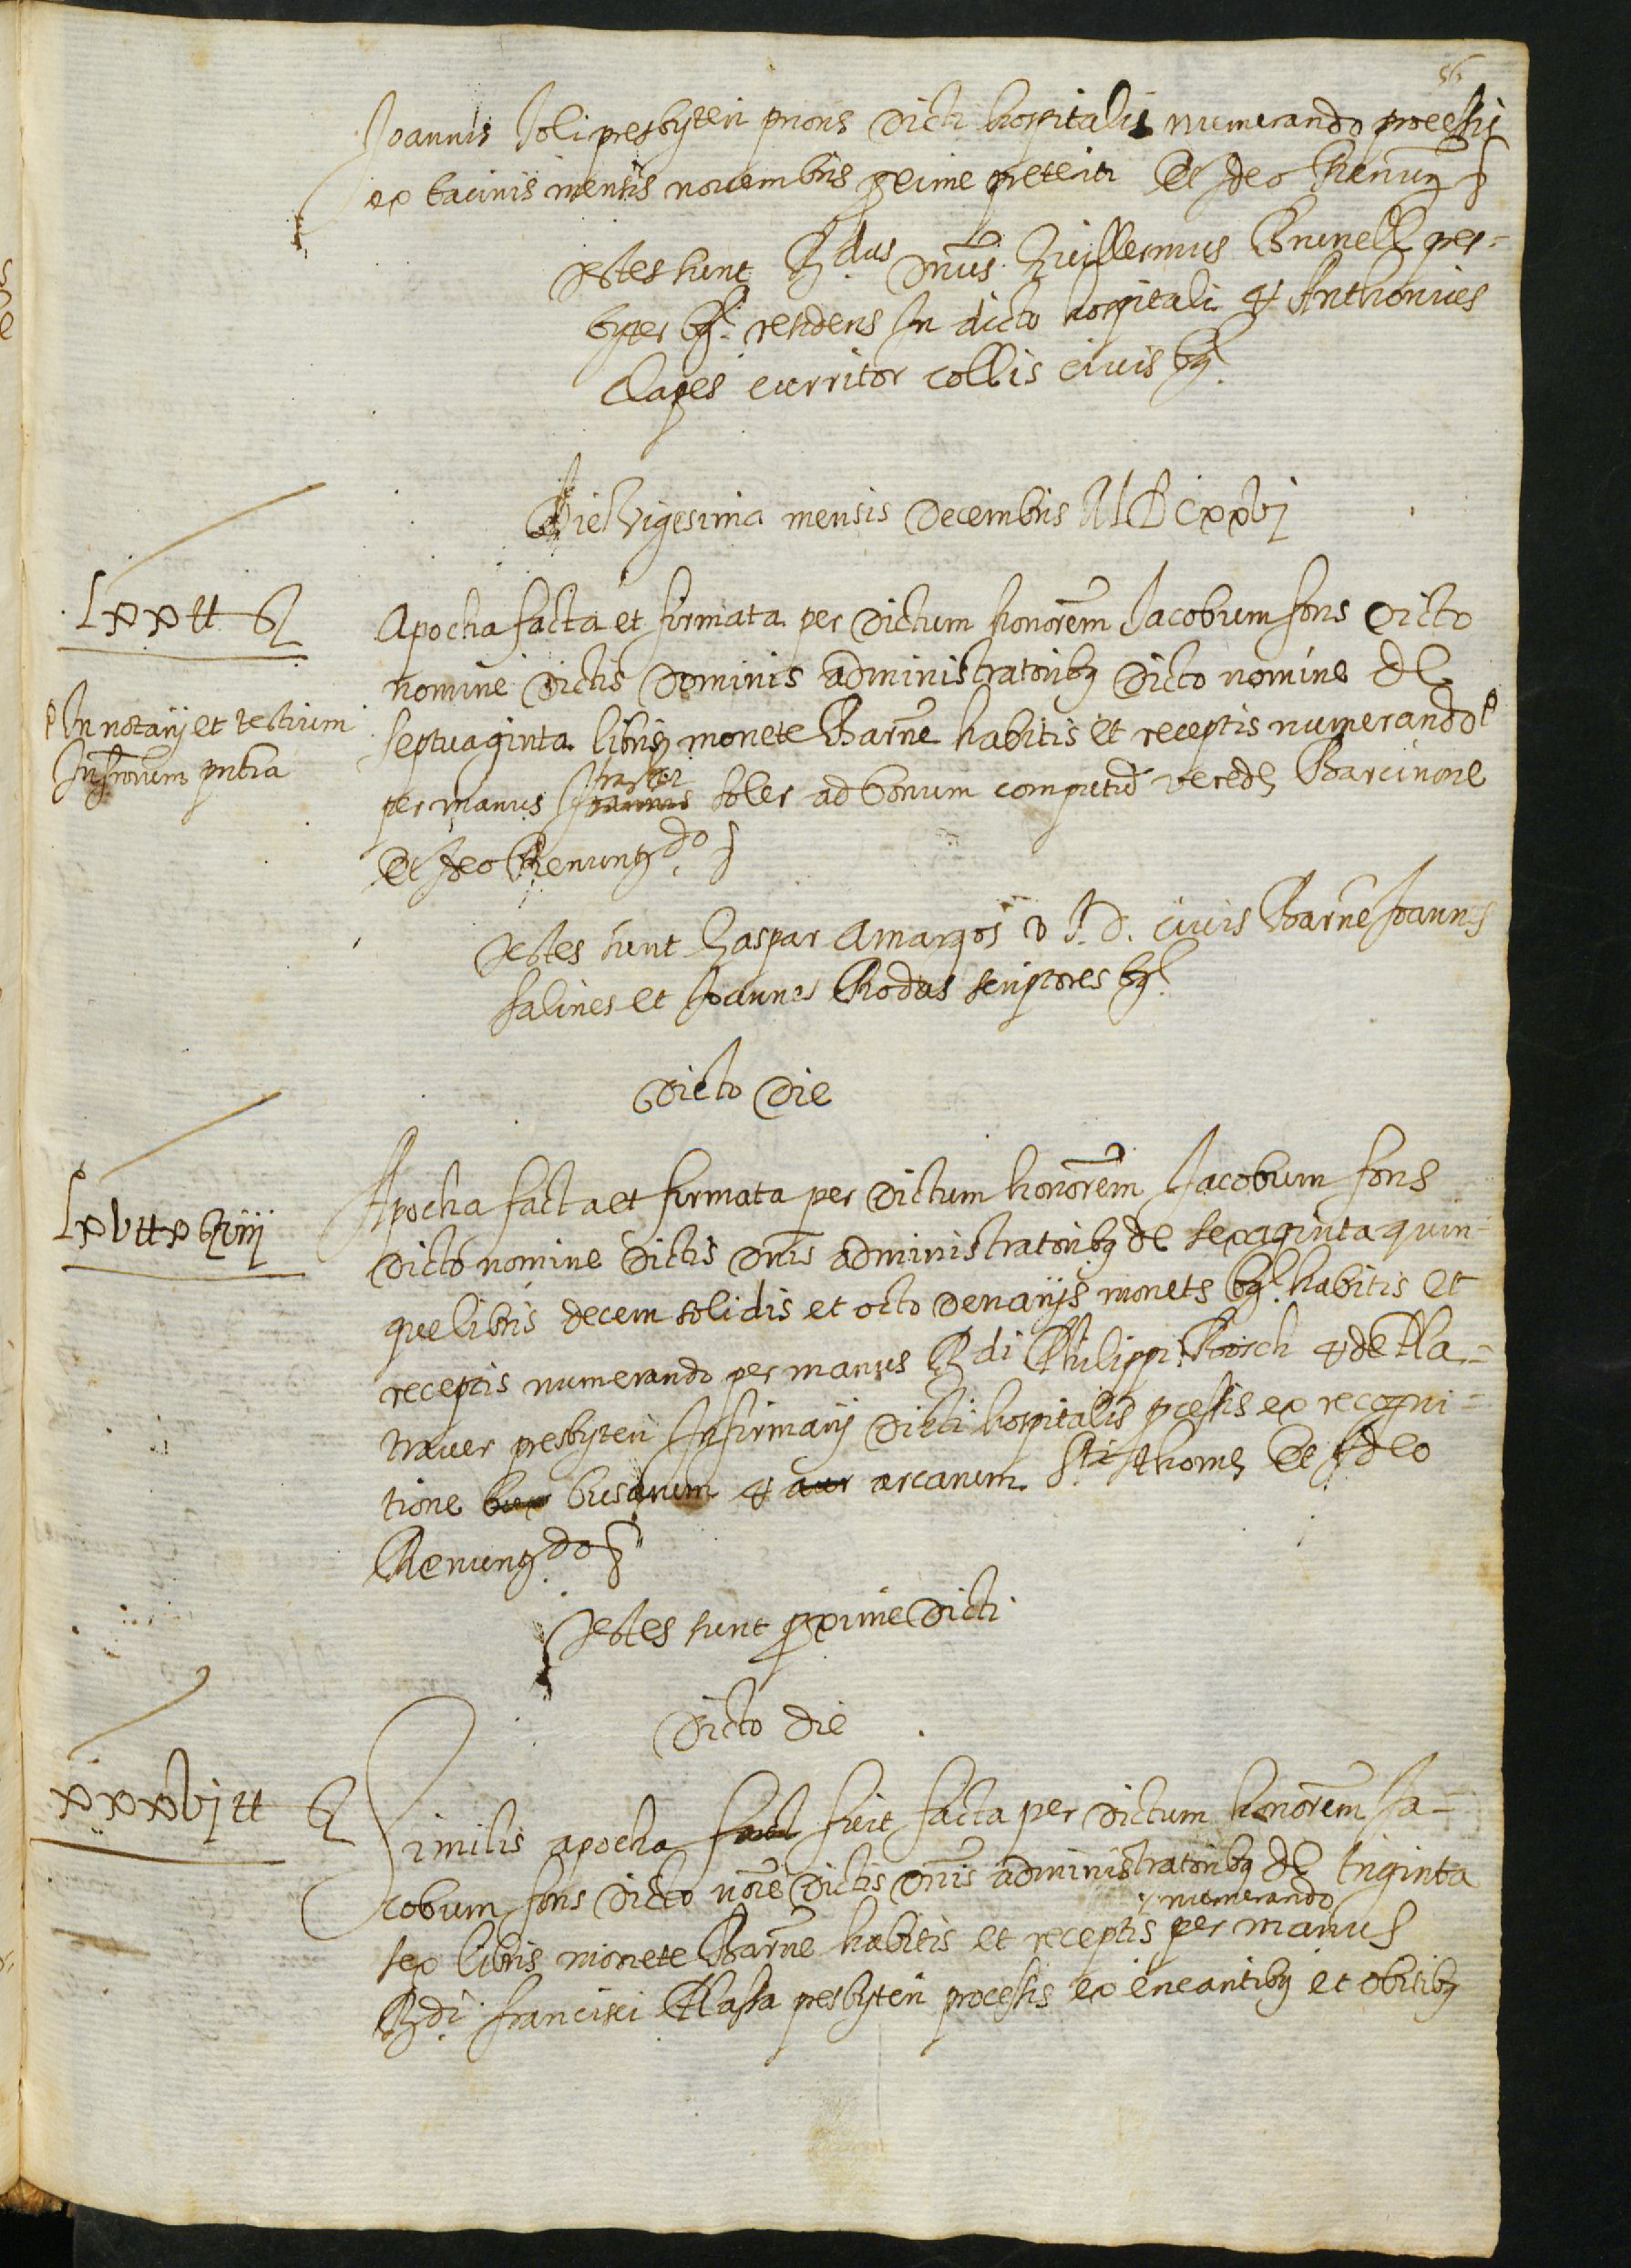 56
Joannis Soli presbyteri prioris dicti hospitalis numerando processis
ex bacinis mensis novembris proxime preteriti Et Ideo Renunª &
Testes sunt Rdus dnus Guillermus Brunell pres=
byter bñ. residens In dicto hospitali et Anthonius
Clapes curritor collis civis bñ.
Die vigesima mensis decembris MDCxxvj
Lxx tt ß
Apocha facta et firmata per dictum honorem Jacobum fons dicto
nomine dictis dominis administratoribus dicto nomine de
septuaginta libris monete Barñe habitis et receptis numerando
In notarij et testium
Infrorum pntia
per manus Joannis soler ad bonum computum mercedis Barcinone
Et Ideo Renungdo &
Testes sunt Gaspar Amargos V. J. D. civis Barñe Joannes
salines et Joannes Rodas scriptores bñ.
Dicto die
Lxv tt x ß viij
Apocha facta et firmata per dictum honorem Jacobum fons
dicto nomine dictis dnis administratoribus de sexaginta quin=
que libris decem solidis et octo denarijs monete bñ. habitis et
receptis numerando per manus Rdi Philippi Bosch et de Pla=
traver presbyteri Infirmarij dicti hospitalis processis ex recogni=
tione bux busarum et aur arcarum Sti thome Et Ideo
Renungdo &
Testes sunt proxime dicti
Dicto die
xxxvj tt ß
Similis apocha fact fuit facta per dictum honorem Ja=
cobum fons dicto noie dictis dnis administratoribus de triginta
numerando
sex libris monete Barñe habitis et receptis per manus
Rdi francisci Plassa presbyteri processis ex encantibus et obitibus